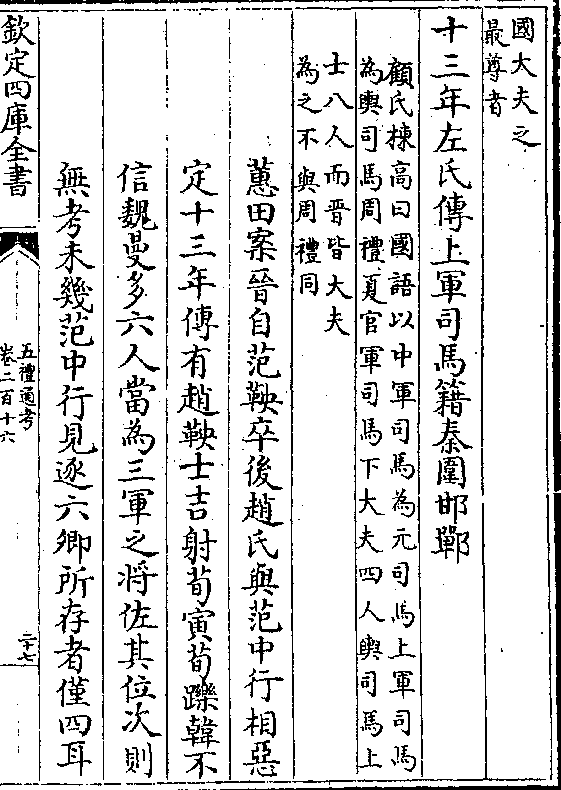 國大夫之
最尊者
十三年左氏傳上軍司馬籍秦圍邯鄲
顧氏棟高曰國語以中軍司馬為元司馬上軍司馬
為輿司馬周禮夏官軍司馬下大夫四人輿司馬上
士八人而晋皆大夫
為之不與周禮同
蕙田案晉自范鞅卒後趙氏與范中行相惡
定十三年傳有趙鞅士吉射荀寅荀躒韓不
信魏曼多六人當為三軍之将佐其位次則
無考未幾范中行見逐六卿所存者僅四耳
欽定四庫全書
五禮通考
卷二百十六
二十七